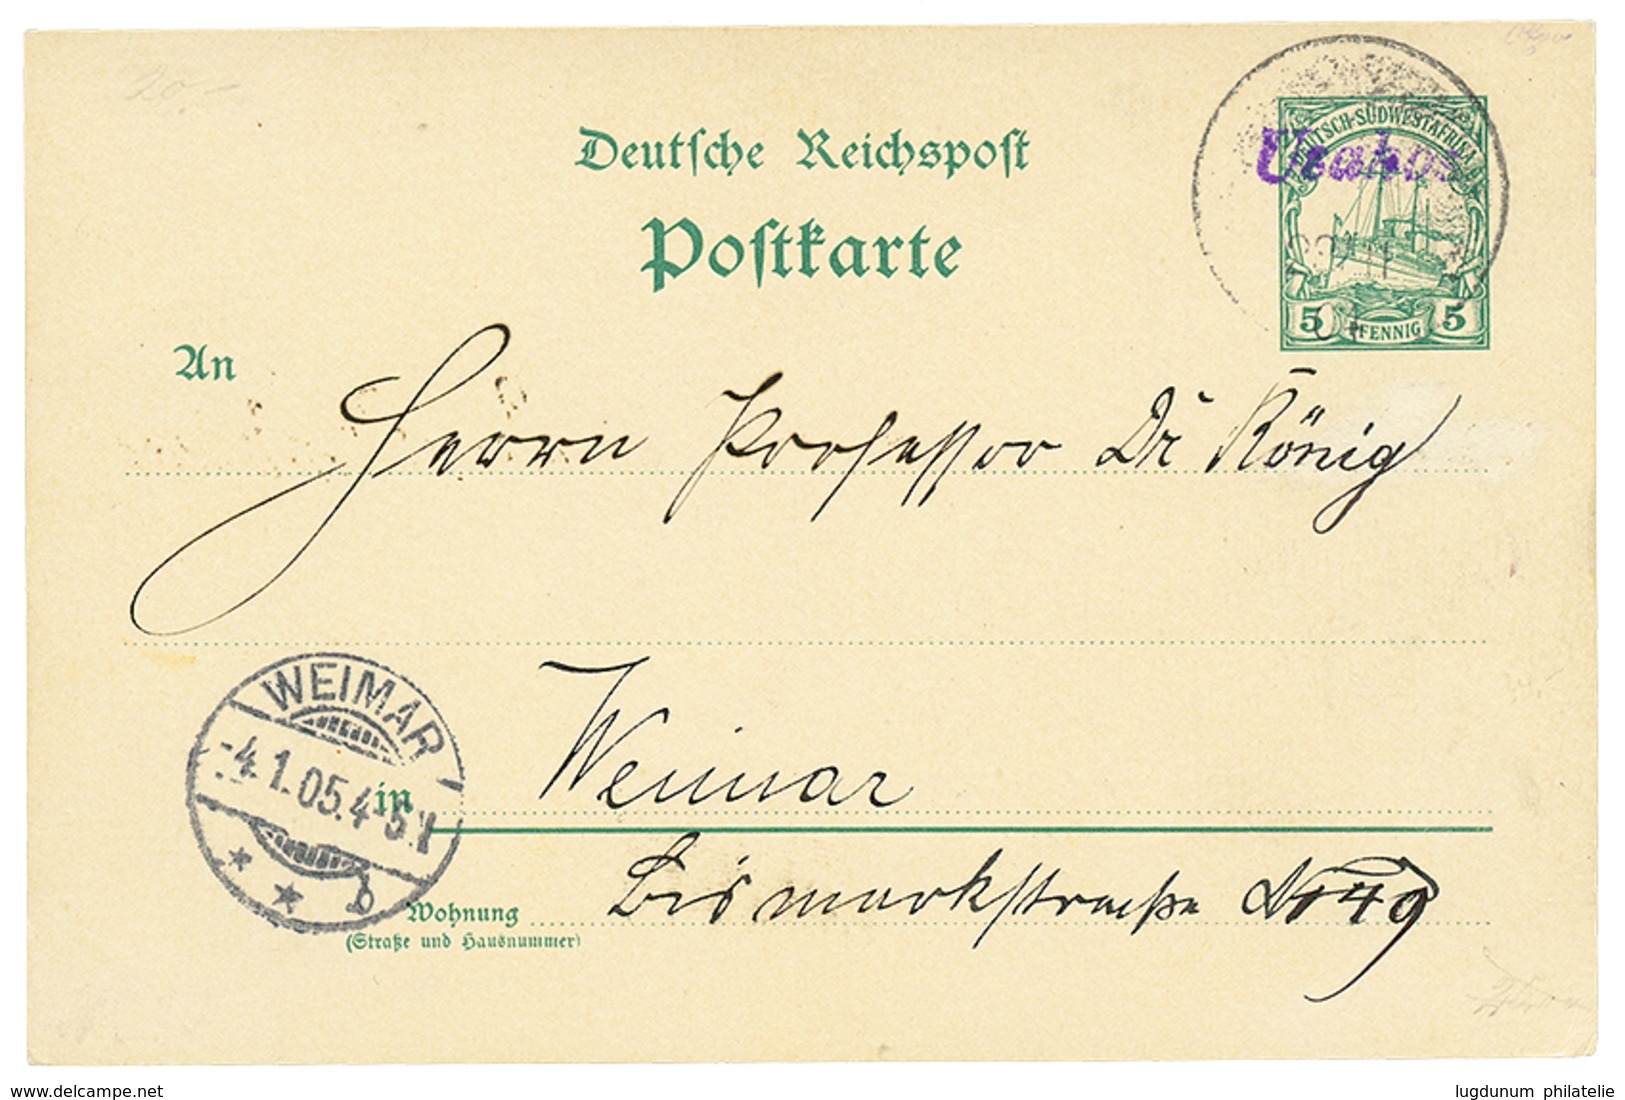 Deutsche Reichspost
Postkarte
DEUTSCH-SÜDWESTAFRIKA
Usakos
5 PFENNIG 5
An
Herrn Professor Dr König
WEIMAR
-4.1.05.4-5.N
in
Weimar
Wohnung
(Straße und Hausnummer)
Bismarckstraße No
delcampe.net
lugdunum philatelie